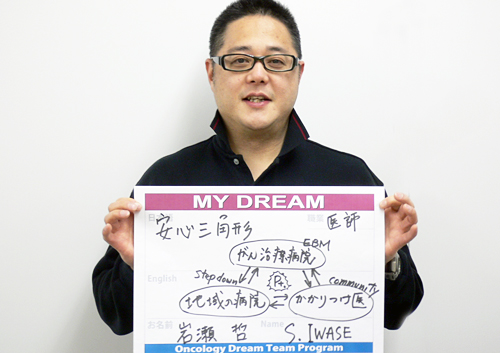 MY DREAM
安心三角形 医師
がん治療病院 EBM
English step down Pt. community
地域の病院 かかりつけ医
お名前 岩瀬 哲 Name S. IWASE
Oncology Dream Team Program